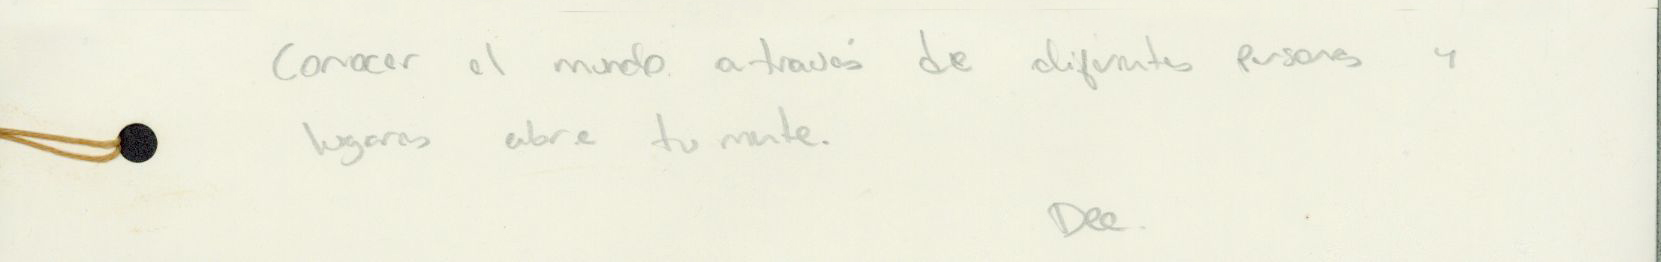 Conocer el mundo a través de diferentes personas y
lugares abre tu mente.
Dee.